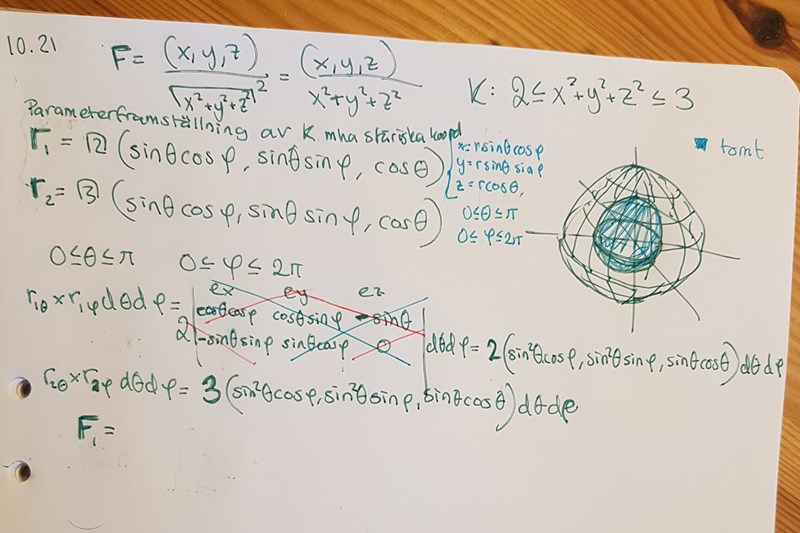 10.21
F = (x,y,z) / √(x²+y²+z²)² = (x,y,z) / x²+y²+z²
K: 2 ≤ x²+y²+z² ≤ 3
Parameterframställning av K mha sfäriska koord
x=rsinθcosφ
y=rsinθsinφ
z=rcosθ,
0≤θ≤π
0≤φ≤2π
tomt
r₁ = √2 (sinθcosφ, sinθsinφ, cosθ)
r₂ = √3 (sinθcosφ, sinθsinφ, cosθ)
0≤θ≤π 0≤φ≤2π
r₁θ × r₁φ dθdφ = 2 | ex ey ez
cosθcosφ cosθsinφ -sinθ
-sinθsinφ sinθcosφ 0 | dθdφ = 2(sin²θcosφ, sin²θsinφ, sinθcosθ)dθdφ
r₂θ × r₂φ dθdφ = 3(sin²θcosφ, sin²θsinφ, sinθcosθ)dθdφ
F₁ =